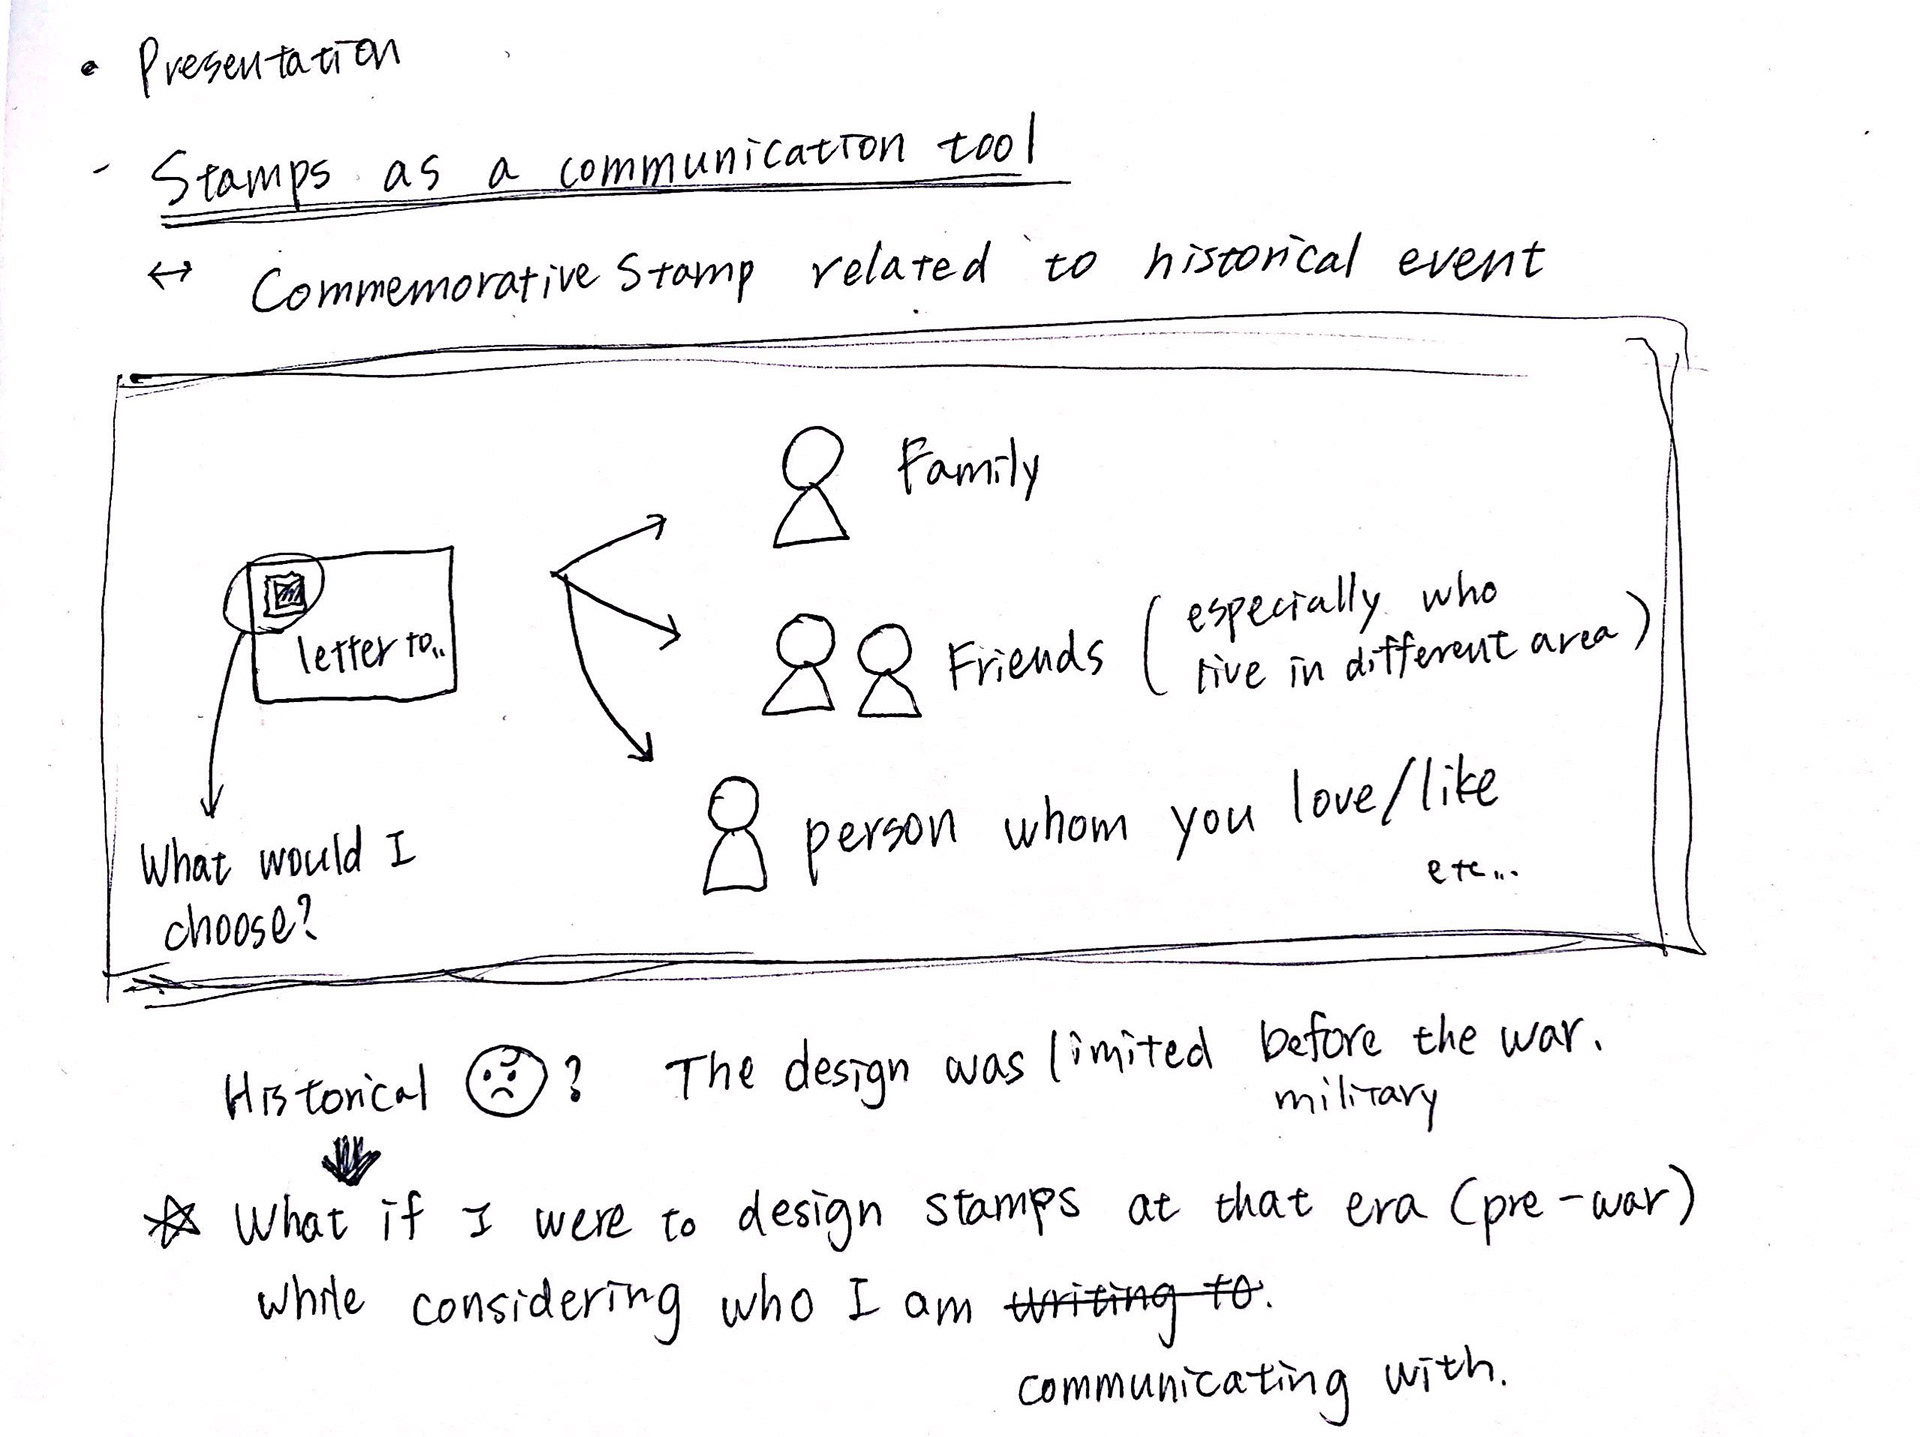 • Presentation
- Stamps as a communication tool
↔ Commemorative Stamp related to historical event
Family
letter to..
Friends (especially who
live in different area)
person whom you love/like
etc...
What would I
choose?
Historical ? The design was limited before the war.
military
☆ What if I were to design stamps at that era (pre-war)
while considering who I am writing to.
communicating with.